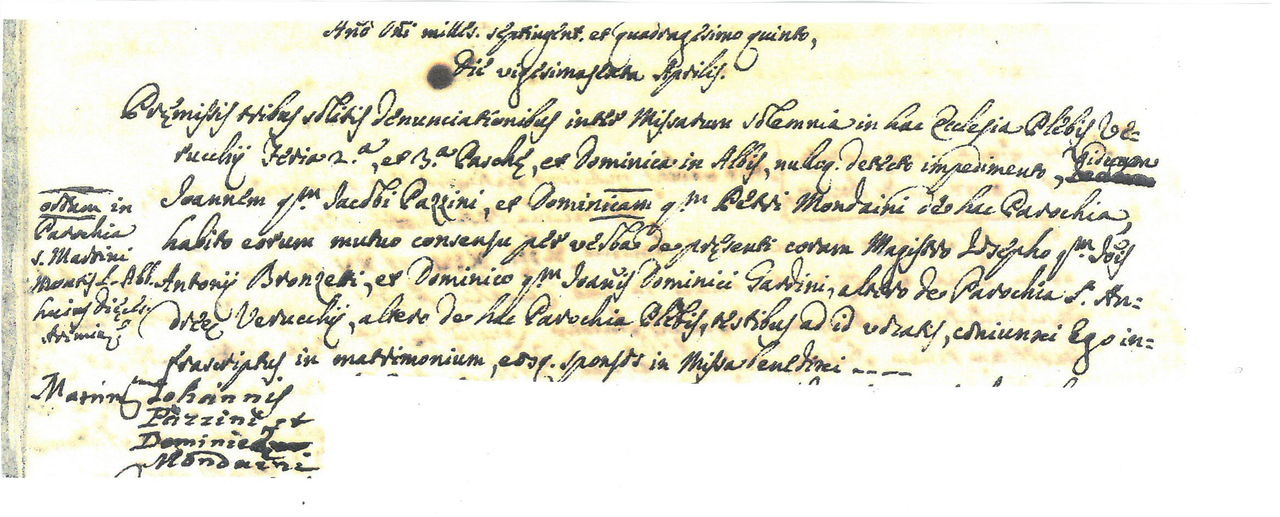 Año Dñi milles. septingent. et quadragesimo quinto,
Die vigesimasexta Aprilis.
Pręmissis tribus solitis denunciationibus inter Missarum solemnia in hac Ecclesia Plebis Ve-
rucchij Feria 2.ª, et 3.ª Paschę, et Dominica in Albis, nulloq. detecto impedimento,
Joannem qm. Jacobi Pazzini, et Dominicam qm. Petri Mondaini de hac Parochia,
habito eorum mutuo consensu per verba de pręsenti coram Magistro Josepho qm. Jõis
Antonij Bronzetti, et Dominico qm. Joañis Dominici Gardini, altero de Parochia S. An-
dręę Verucchij, altero de hac Parochia Plebis, testibus ad id vocatis, coniunxi Ego in-
frascriptus in matrimonium, eosq. sponsos in Missa benedixi ----
ortum in
Parochia
S. Martini
Montis L. Abb.
huius Dięcls.
Arimin.
Matrim. Johannis
Pazzini et
Dominicę
Mondaini